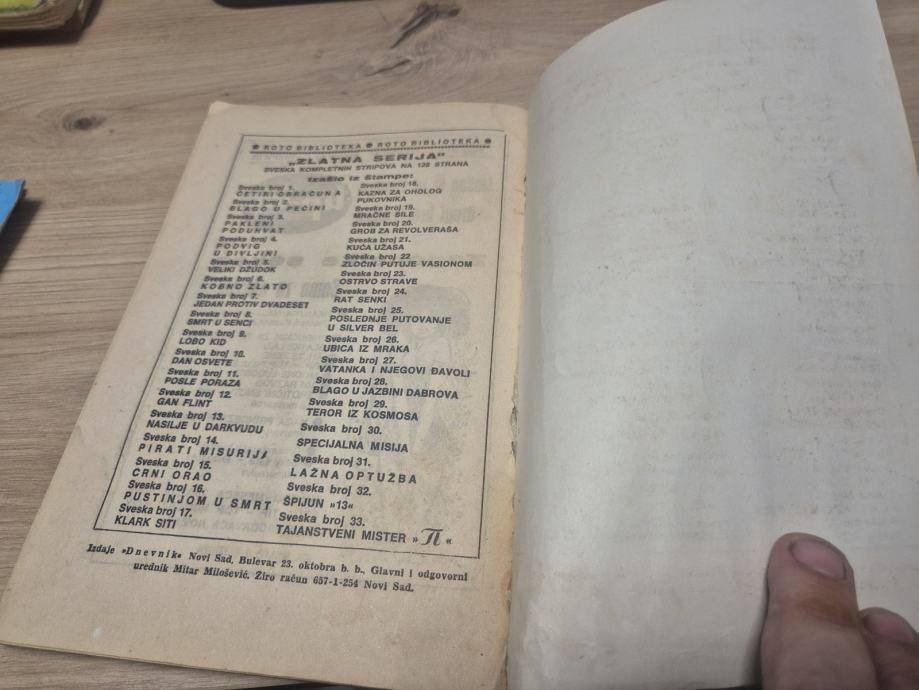 ● ROTO BIBLIOTEKA ● ROTO BIBLIOTEKA ●
„ZLATNA SERIJA“
SVESKA KOMPLETNIH STRIPOVA NA 128 STRANA
Izašlo iz štampe:
Sveska broj 1.
ČETIRI OBRAČUNA
Sveska broj 2.
BLAGO U PEĆINI
Sveska broj 3.
PAKLENI
PODUHVAT
Sveska broj 4.
PODVIG
U DIVLJINI
Sveska broj 5.
VELIKI DŽUDOK
Sveska broj 6.
KOBNO ZLATO
Sveska broj 7.
JEDAN PROTIV DVADESET
Sveska broj 8.
SMRT U SENCI
Sveska broj 9.
LOBO KID
Sveska broj 10.
DAN OSVETE
Sveska broj 11.
POSLE PORAZA
Sveska broj 12.
GAN FLINT
Sveska broj 13.
NASILJE U DARKVUDU
Sveska broj 14.
PIRATI MISURIJA
Sveska broj 15.
CRNI ORAO
Sveska broj 16.
PUSTINJOM U SMRT
Sveska broj 17.
KLARK SITI
Sveska broj 18.
KAZNA ZA OHOLOG
PUKOVNIKA
Sveska broj 19.
MRAČNE SILE
Sveska broj 20.
GROB ZA REVOLVERAŠA
Sveska broj 21.
KUĆA UŽASA
Sveska broj 22
ZLOČIN PUTUJE VASIONOM
Sveska broj 23.
OSTRVO STRAVE
Sveska broj 24.
RAT SENKI
Sveska broj 25.
POSLEDNJE PUTOVANJE
U SILVER BEL
Sveska broj 26.
UBICA IZ MRAKA
Sveska broj 27.
VATANKA I NJEGOVI ĐAVOLI
Sveska broj 28.
BLAGO U JAZBINI DABROVA
Sveska broj 29.
TEROR IZ KOSMOSA
Sveska broj 30.
SPECIJALNA MISIJA
Sveska broj 31.
LAŽNA OPTUŽBA
Sveska broj 32.
ŠPIJUN »13«
Sveska broj 33.
TAJANSTVENI MISTER »π«
Izdaje »Dnevnik« Novi Sad, Bulevar 23. oktobra b. b., Glavni i odgovorni
urednik Mitar Milošević. Žiro račun 657-1-254 Novi Sad.